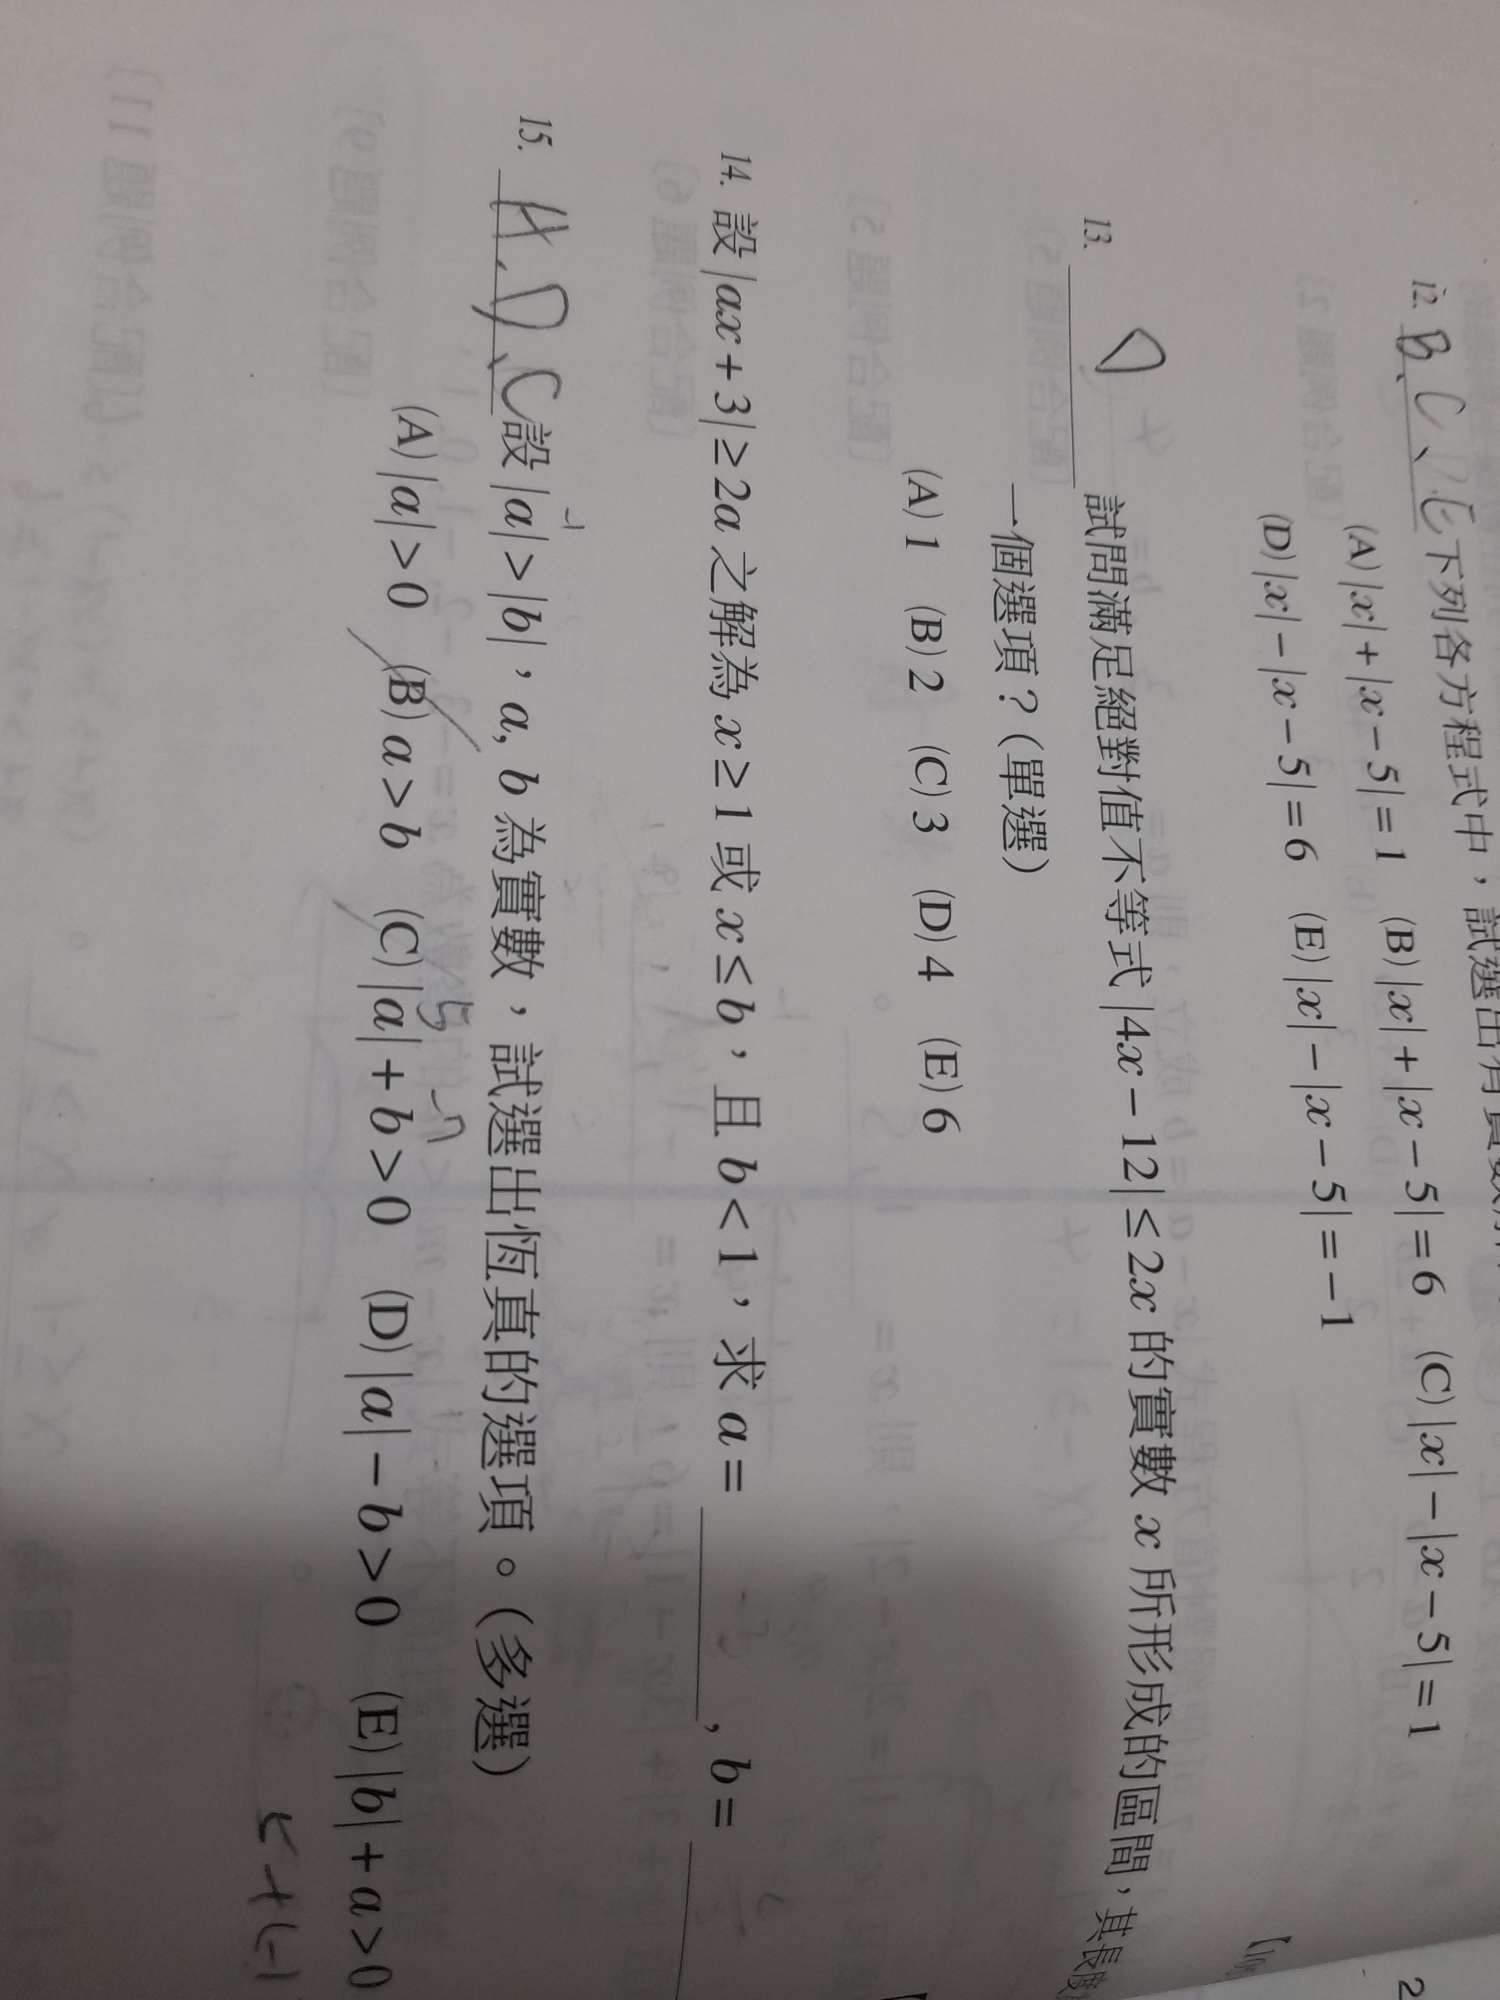 12. B、C、E 下列各方程式中，試選出有實數解
(A) |x| + |x − 5| = 1 (B) |x| + |x − 5| = 6 (C) |x| − |x − 5| = 1
(D) |x| − |x − 5| = 6 (E) |x| − |x − 5| = −1
13. D 試問滿足絕對值不等式 |4x − 12| ≤ 2x 的實數 x 所形成的區間，其長度
一個選項？(單選)
(A) 1 (B) 2 (C) 3 (D) 4 (E) 6
14. 設 |ax + 3| ≥ 2a 之解為 x ≥ 1 或 x ≤ b，且 b < 1，求 a = ，b =
15. A、D、C 設 |a| > |b|，a, b 為實數，試選出恆真的選項。(多選)
(A) |a| > 0 (B) a > b (C) |a| + b > 0 (D) |a| − b > 0 (E) |b| + a > 0